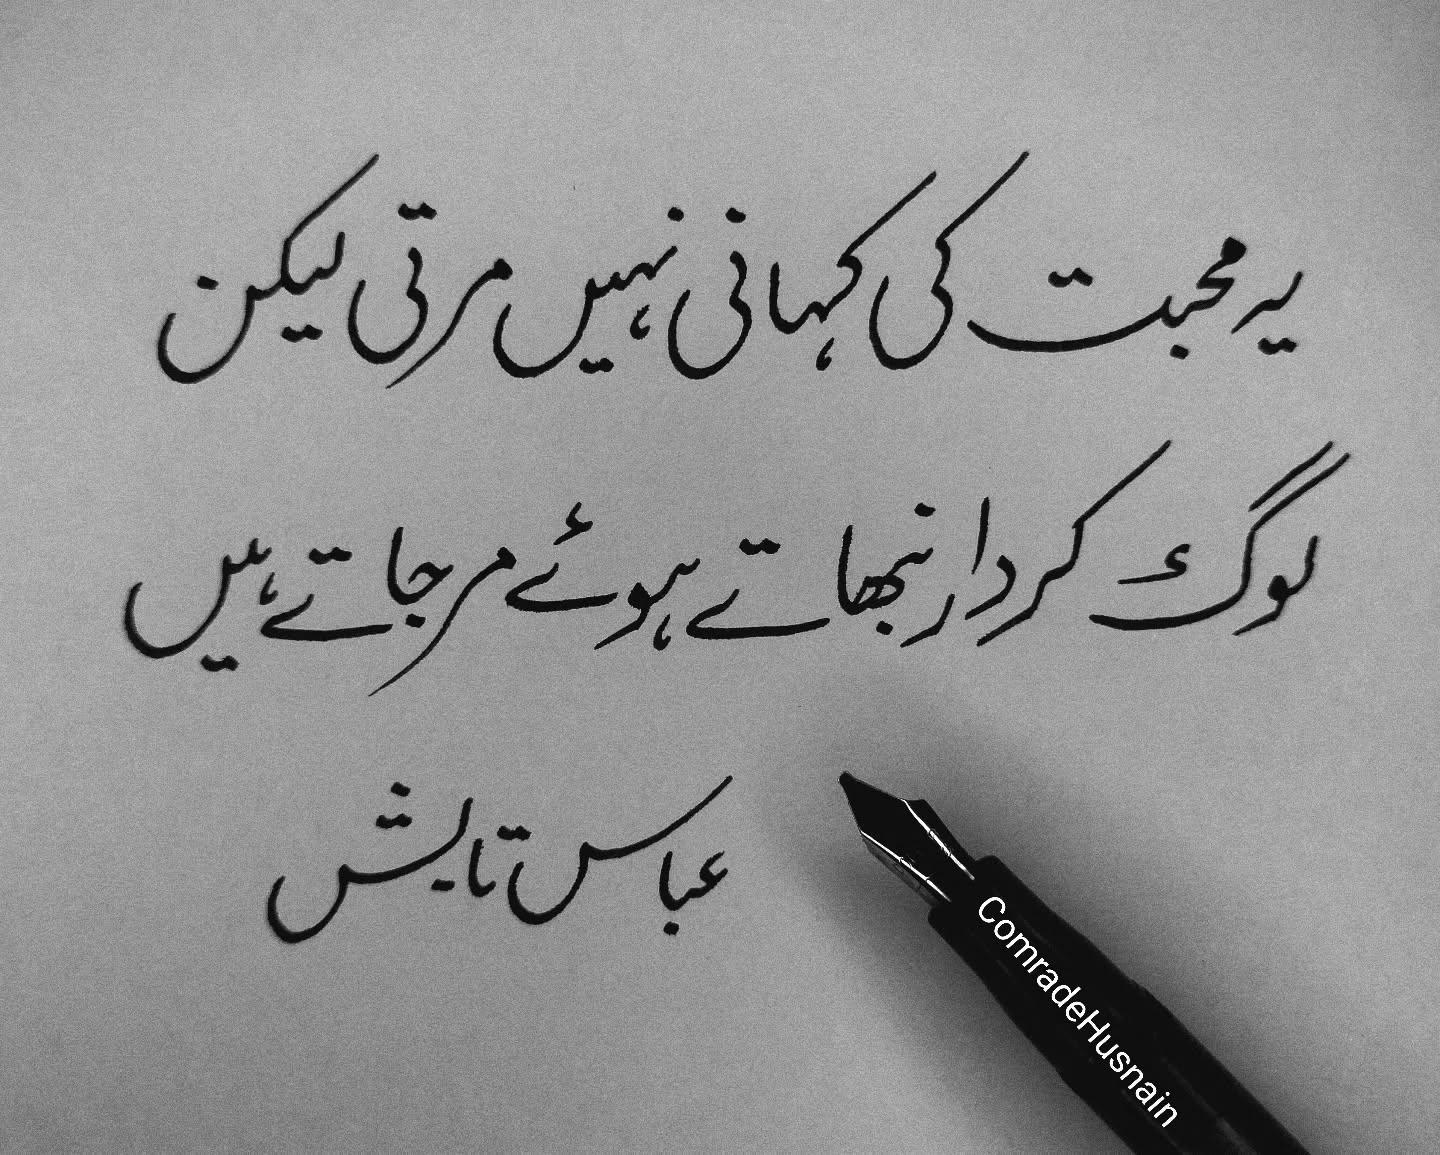 یہ محبت کی کہانی نہیں مرتی لیکن
لوگ کردار نبھاتے ہوئے مر جاتے ہیں
عباس تابش
ComradeHusnain